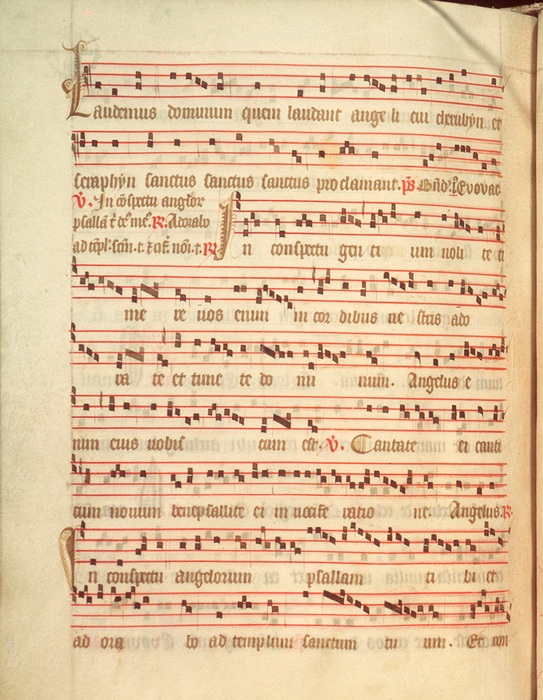 Laudemus dominum quem laudant ange li cui cherubyn et
seraphyn sanctus sanctus sanctus pro clamant. ps Evovae
V. In cōspectu angłor
psallā t̄ de' me'. R. Adorabo
ad tēpl. scm̄. t. R
In conspectu gen ti um noli te ti
me re uos enim in cor dibus ue stris ado
ra te et time te do mi num. Angelus e
nim eius uobis cum est. V. Cantate ei canti
cum nouum bene psallite ei in uocife ratio ne. Angelus. R
In conspectu angelorum psallam ti bi et
ad ora bo ad templum sanctum tu um. Et con